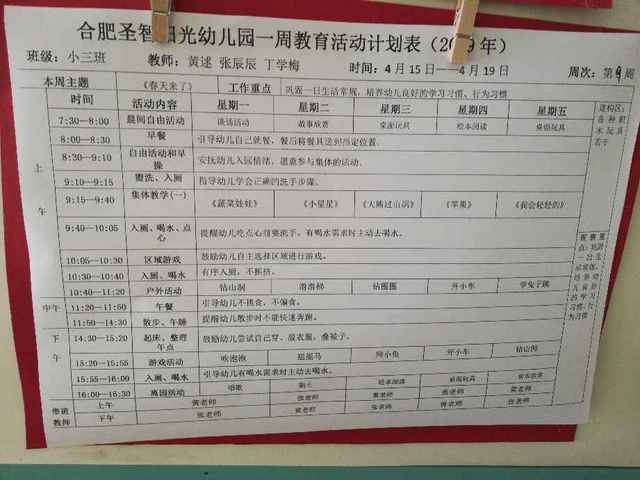 合肥圣智阳光幼儿园一周教育活动计划表（2019年）
班级：小三班 教师：黄述 张辰辰 丁学梅 时间：4月15日——4月19日 周次：第9周
本周主题 《春天来了》 工作重点 巩固一日生活常规，培养幼儿良好的学习习惯、行为习惯
时间 活动内容 星期一 星期二 星期三 星期四 星期五
上午
7:30—8:00 晨间自由活动 谈话活动 故事欣赏 桌面玩具 绘本阅读 桌面玩具
8:00—8:30 早餐 引导幼儿自己就餐，餐后将餐具送到指定位置。
8:30—9:10 自由活动和早操 安抚幼儿入园情绪，愿意参与集体的活动。
9:10—9:15 盥洗、入厕 指导幼儿学会正确的洗手步骤。
9:15—9:40 集体教学(一) 《蔬菜娃娃》 《小星星》 《大熊过山洞》 《苹果》 《我会轻轻的》
9:40—10:05 入厕、喝水、点心 提醒幼儿吃点心前要洗手，有喝水需求时主动去喝水。
10:05—10:30 区域游戏 鼓励幼儿自主选择区域进行游戏。
10:30—10:40 入厕、喝水 有序入厕，不拥挤。
10:40—11:20 户外活动 钻山洞 滑滑梯 钻圈圈 开小车 学兔子跳
中午
11:20—11:50 午餐 引导幼儿不挑食，不偏食。
11:50—14:30 散步、午睡 提醒幼儿散步时不能快速奔跑。
下午
14:30—15:20 起床、整理 午点 鼓励幼儿尝试自己穿、脱衣服、叠被子。
15:20—15:55 游戏活动 吹泡泡 摇摇马 网小鱼 开小车 钻山洞
15:55—16:00 入厕、喝水 引导幼儿有喝水需求时主动去喝水。
16:00—16:30 离园活动 唱歌 绘本阅读 桌面玩具
带班教师 上午 黄老师 张老师 黄老师 张老师 黄老师
下午 张老师 黄老师 张老师 黄老师 张老师
建构区：
各种积
木玩具
若干